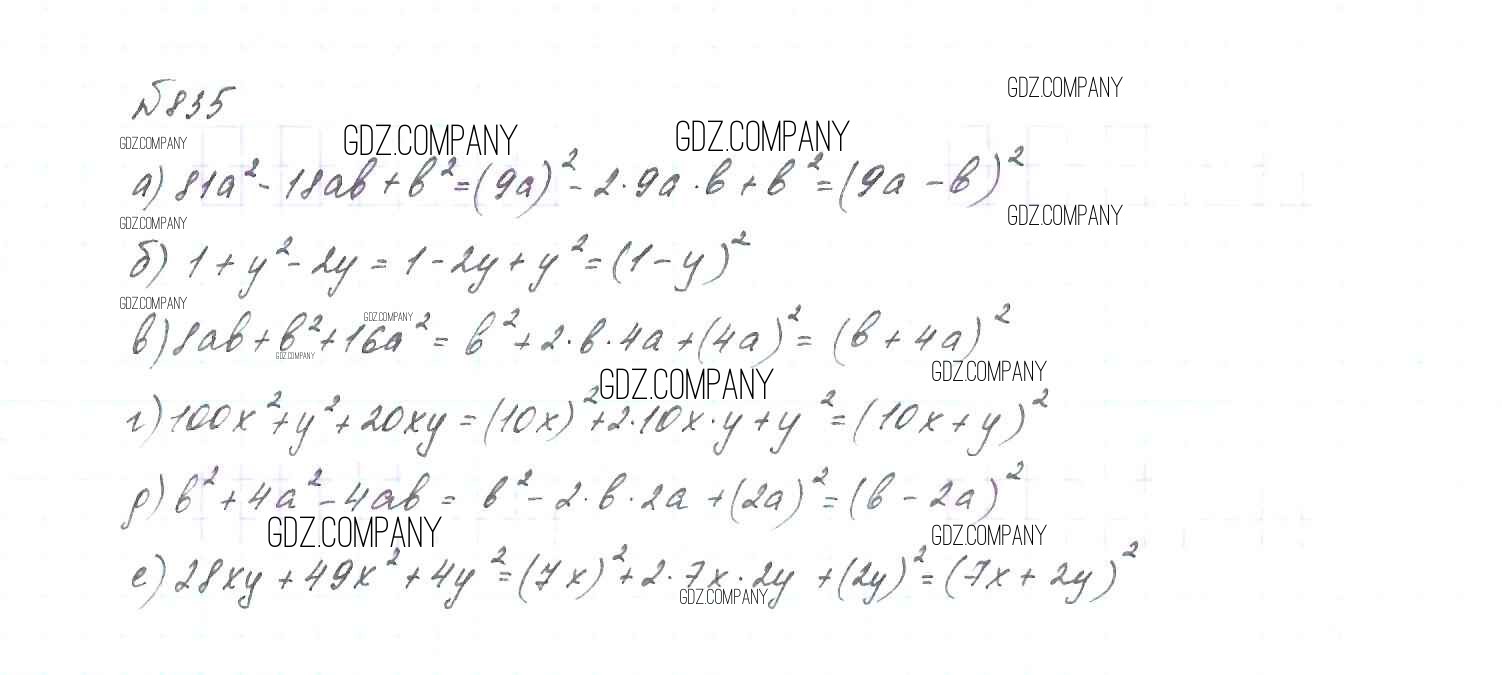 №835
GDZ.COMPANY
GDZ.COMPANY
GDZ.COMPANY
GDZ.COMPANY
а) 81a² - 18ab + b² = (9a)² - 2·9a·b + b² = (9a - b)²
GDZ.COMPANY
GDZ.COMPANY
б) 1 + y² - 2y = 1 - 2y + y² = (1 - y)²
GDZ.COMPANY
GDZ.COMPANY
в) 8ab + b² + 16a² = b² + 2·b·4a + (4a)² = (b + 4a)²
GDZ.COMPANY
GDZ.COMPANY
GDZ.COMPANY
г) 100x² + y² + 20xy = (10x)² + 2·10x·y + y² = (10x + y)²
д) b² + 4a² - 4ab = b² - 2·b·2a + (2a)² = (b - 2a)²
GDZ.COMPANY
GDZ.COMPANY
е) 28xy + 49x² + 4y² = (7x)² + 2·7x·2y + (2y)² = (7x + 2y)²
GDZ.COMPANY